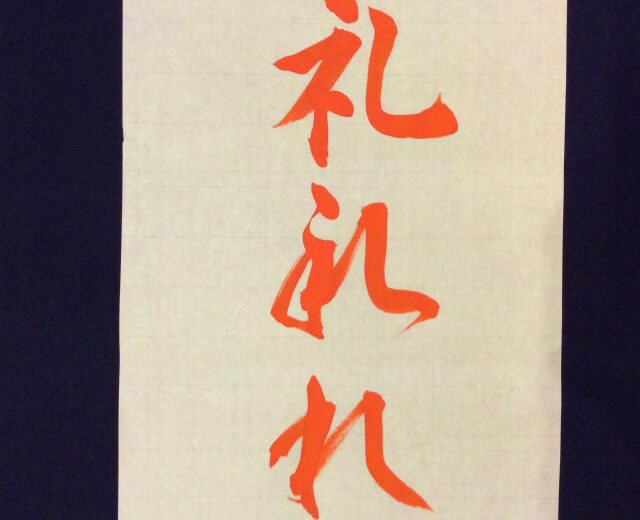 礼
礼
れ